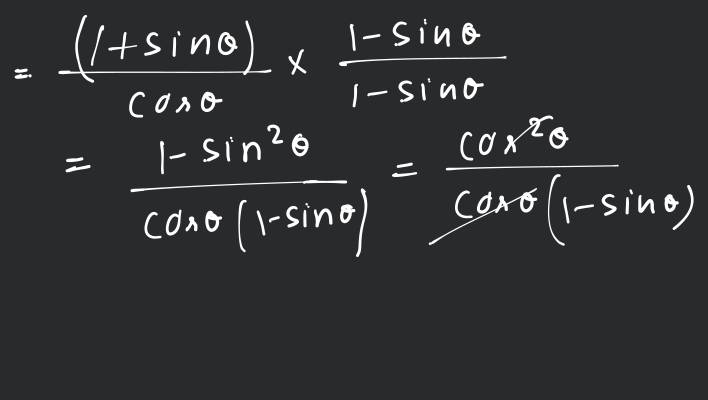 = (1+sinθ)/cosθ × (1-sinθ)/(1-sinθ)
= (1-sin²θ)/(cosθ(1-sinθ)) = cos²θ/(cosθ(1-sinθ))